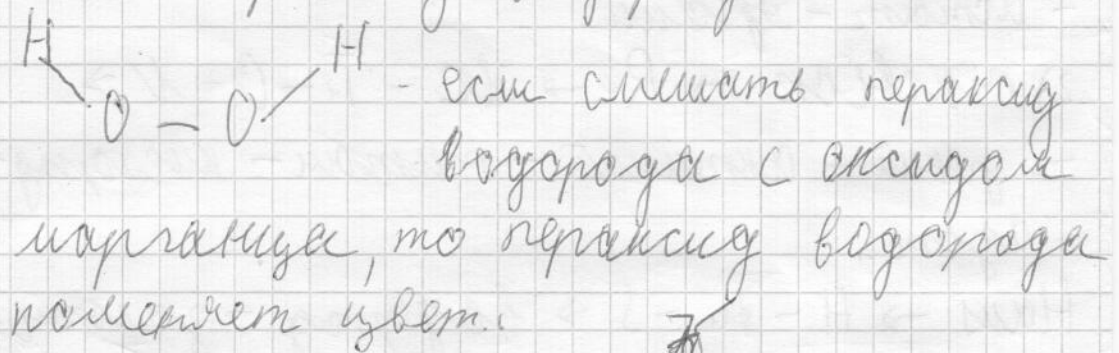 H H
O – O - если смешать пераксид
водорода с оксидом
марганца, то пераксид водорода
поменяет цвет.